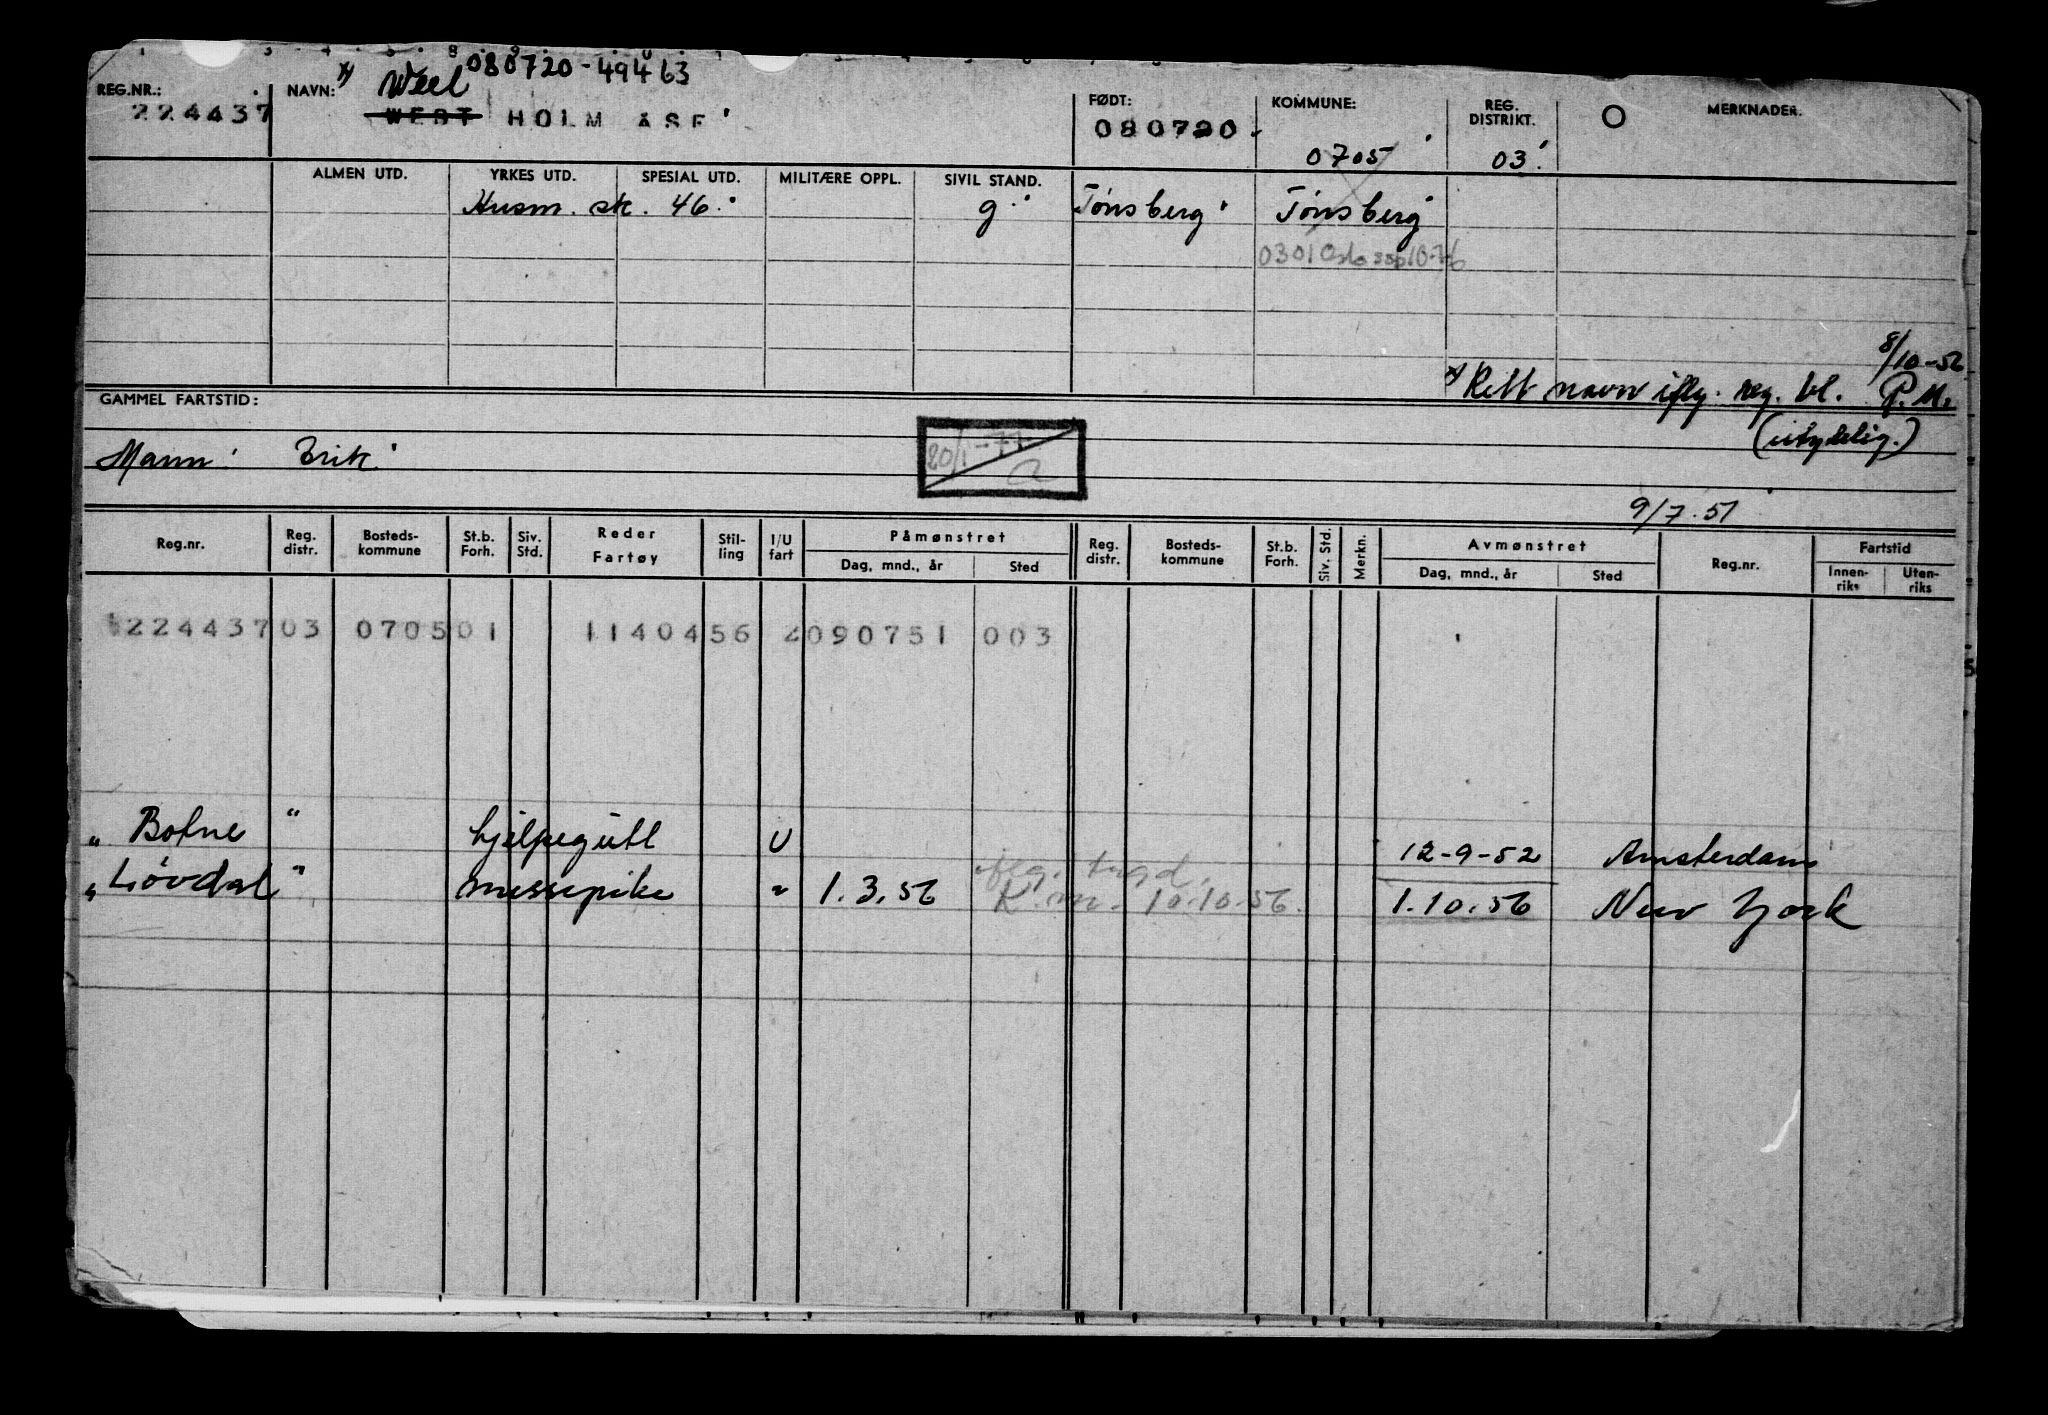 080720-49463
x) Weel
REG.NR.: NAVN: FØDT: KOMMUNE: REG. DISTRIKT. MERKNADER.
224437 WEST HOLM ASE 080720
0705 03
ALMEN UTD. YRKES UTD. SPESIAL UTD. MILITÆRE OPPL. SIVIL STAND.
Husm. sk. 46. g Tønsberg Tønsberg
0301 Oslo 10-76
8/10-56
GAMMEL FARTSTID: x) Rett navn iflg. reg. bl. P.M.
(utydelig.)
20/1-77
Mann: Erik
9/7.51
Reg.nr. Reg. distr. Bosteds- kommune St.b. Forh. Siv. Std. Reder Fartøy Stil- ling I/U fart Påmønstret Reg. distr. Bosteds- kommune St.b. Forh. Siv. Std. Merkn. Avmønstret Reg.nr. Fartstid
Dag, mnd., år Sted Dag, mnd., år Sted Innen- riks Uten- riks
224437 03 0705 01 11404 56 2 090751 003
" Botne " hjelpegutt U 12-9-52 Amsterdam
iflg. tngd.
" Løvdal " messepike " 1.3.56 K.m. 10.10.56. 1.10.56 New York